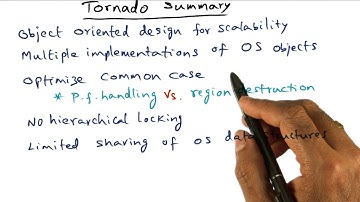 Tornado Summary
Object Oriented design for scalability
Multiple implementations of OS objects
Optimize common case
* P.f. handling vs. region destruction
No hierarchical locking
Limited sharing of OS data structures